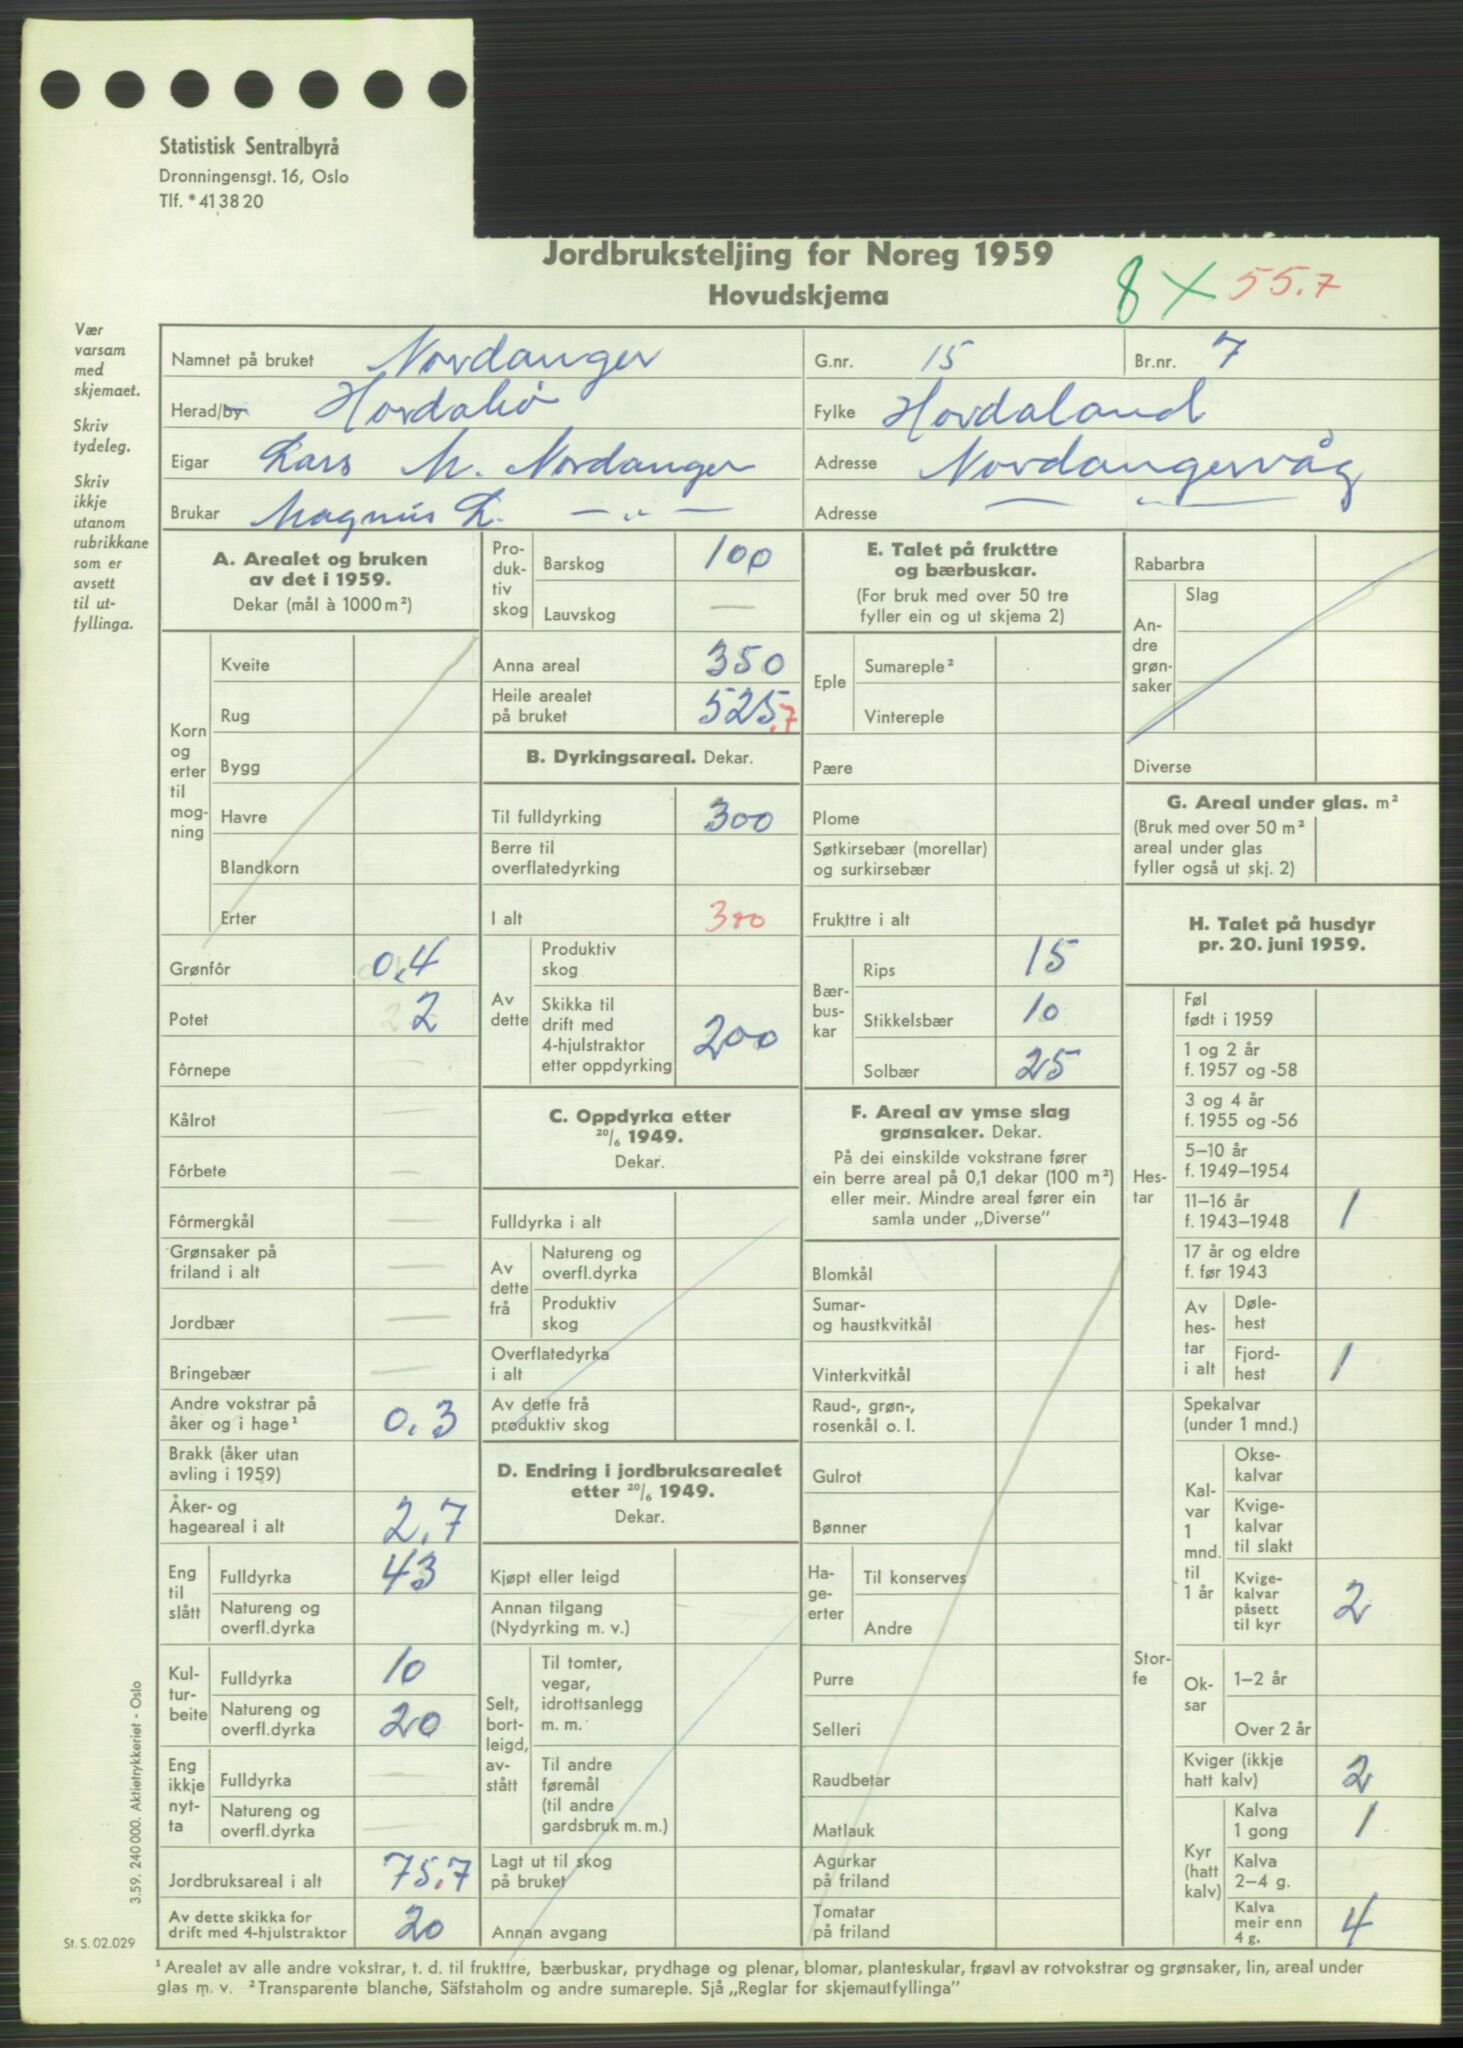 Statistisk Sentralbyrå
Dronningensgt. 16, Oslo
Tlf. * 41 38 20
Jordbruksteljing for Noreg 1959
Hovudskjema
8 X 55.7
Vær
varsam
med
skjemaet.
Skriv
tydeleg.
Skriv
ikkje
utanom
rubrikkane
som er
avsett
til ut-
fyllinga.
Namnet på bruket Nordanger G.nr. 15 Br.nr. 7
Herad/by Hordabø Fylke Hordaland
Eigar Lars M. Nordanger Adresse Nordangervåg
Brukar Magnus L. — „ — Adresse — „ —
A. Arealet og bruken
av det i 1959.
Dekar (mål à 1000 m²)
Korn og erter til mog-ning
Kveite
Rug
Bygg
Havre
Blandkorn
Erter
Grønfôr 0,4
Potet 2
Fôrnepe —
Kålrot —
Fôrbete —
Fôrmergkål —
Grønsaker på
friland i alt —
Jordbær —
Bringebær —
Andre vokstrar på
åker og i hage¹ 0,3
Brakk (åker utan
avling i 1959)
Åker- og
hageareal i alt 2,7
Eng til slått
Fulldyrka 43
Natureng og
overfl.dyrka
Kul-tur-beite
Fulldyrka 10
Natureng og
overfl.dyrka 20
Eng ikkje nyt-ta
Fulldyrka —
Natureng og
overfl.dyrka —
Jordbruksareal i alt 75,7
Av dette skikka for
drift med 4-hjulstraktor 20
Pro-duk-tiv skog
Barskog 100
Lauvskog —
Anna areal 350
Heile arealet
på bruket 525,7
B. Dyrkingsareal. Dekar.
Til fulldyrking 300
Berre til
overflatedyrking
I alt 300
Av dette
Produktiv
skog
Skikka til
drift med
4-hjulstraktor
etter oppdyrking 200
C. Oppdyrka etter
20/6 1949.
Dekar.
Fulldyrka i alt
Av dette frå
Natureng og
overfl.dyrka
Produktiv
skog
Overflatedyrka
i alt
Av dette frå
produktiv skog
D. Endring i jordbruksarealet
etter 20/6 1949.
Dekar.
Kjøpt eller leigd
Annan tilgang
(Nydyrking m. v.)
Selt, bort-leigd, av-stått
Til tomter,
vegar,
idrottsanlegg
m. m.
Til andre
føremål
(til andre
gardsbruk m. m.)
Lagt ut til skog
på bruket
Annan avgang
E. Talet på frukttre
og bærbuskar.
(For bruk med over 50 tre
fyller ein og ut skjema 2)
Eple
Sumareple²
Vintereple
Pære
Plome
Søtkirsebær (morellar)
og surkirsebær
Frukttre i alt
Bær-bus-kar
Rips 15
Stikkelsbær 10
Solbær 25
F. Areal av ymse slag
grønsaker. Dekar.
På dei einskilde vokstrane fører
ein berre areal på 0,1 dekar (100 m²)
eller meir. Mindre areal fører ein
samla under „Diverse"
Blomkål
Sumar-
og haustkvitkål
Vinterkvitkål
Raud-, grøn-,
rosenkål o. l.
Gulrot
Bønner
Ha-ge-erter
Til konserves
Andre
Purre
Selleri
Raudbetar
Matlauk
Agurkar
på friland
Tomatar
på friland
Rabarbra
An-dre grøn-saker
Slag
Diverse
G. Areal under glas. m²
(Bruk med over 50 m²
areal under glas
fyller også ut skj. 2)
H. Talet på husdyr
pr. 20. juni 1959.
Hes-tar
Føl
født i 1959
1 og 2 år
f. 1957 og -58
3 og 4 år
f. 1955 og -56
5–10 år
f. 1949–1954
11–16 år
f. 1943–1948 1
17 år og eldre
f. før 1943
Av hes-tar i alt
Døle-
hest
Fjord-
hest 1
Stor-fe
Spekalvar
(under 1 mnd.)
Kal-var 1 mnd. til 1 år
Okse-
kalvar
Kvige-
kalvar
til slakt
Kvige-
kalvar
påsett
til kyr 2
Ok-sar
1–2 år
Over 2 år
Kviger (ikkje
hatt kalv) 2
Kyr (hatt kalv)
Kalva
1 gong 1
Kalva
2–4 g.
Kalva
meir enn
4 g. 4
3.59. 240 000. Aktietrykkeriet - Oslo
St. S. 02.029
¹ Arealet av alle andre vokstrar, t. d. til frukttre, bærbuskar, prydhage og plenar, blomar, planteskular, frøavl av rotvokstrar og grønsaker, lin, areal under
glas m. v. ² Transparente blanche, Säfstaholm og andre sumareple. Sjå „Reglar for skjemautfyllinga"